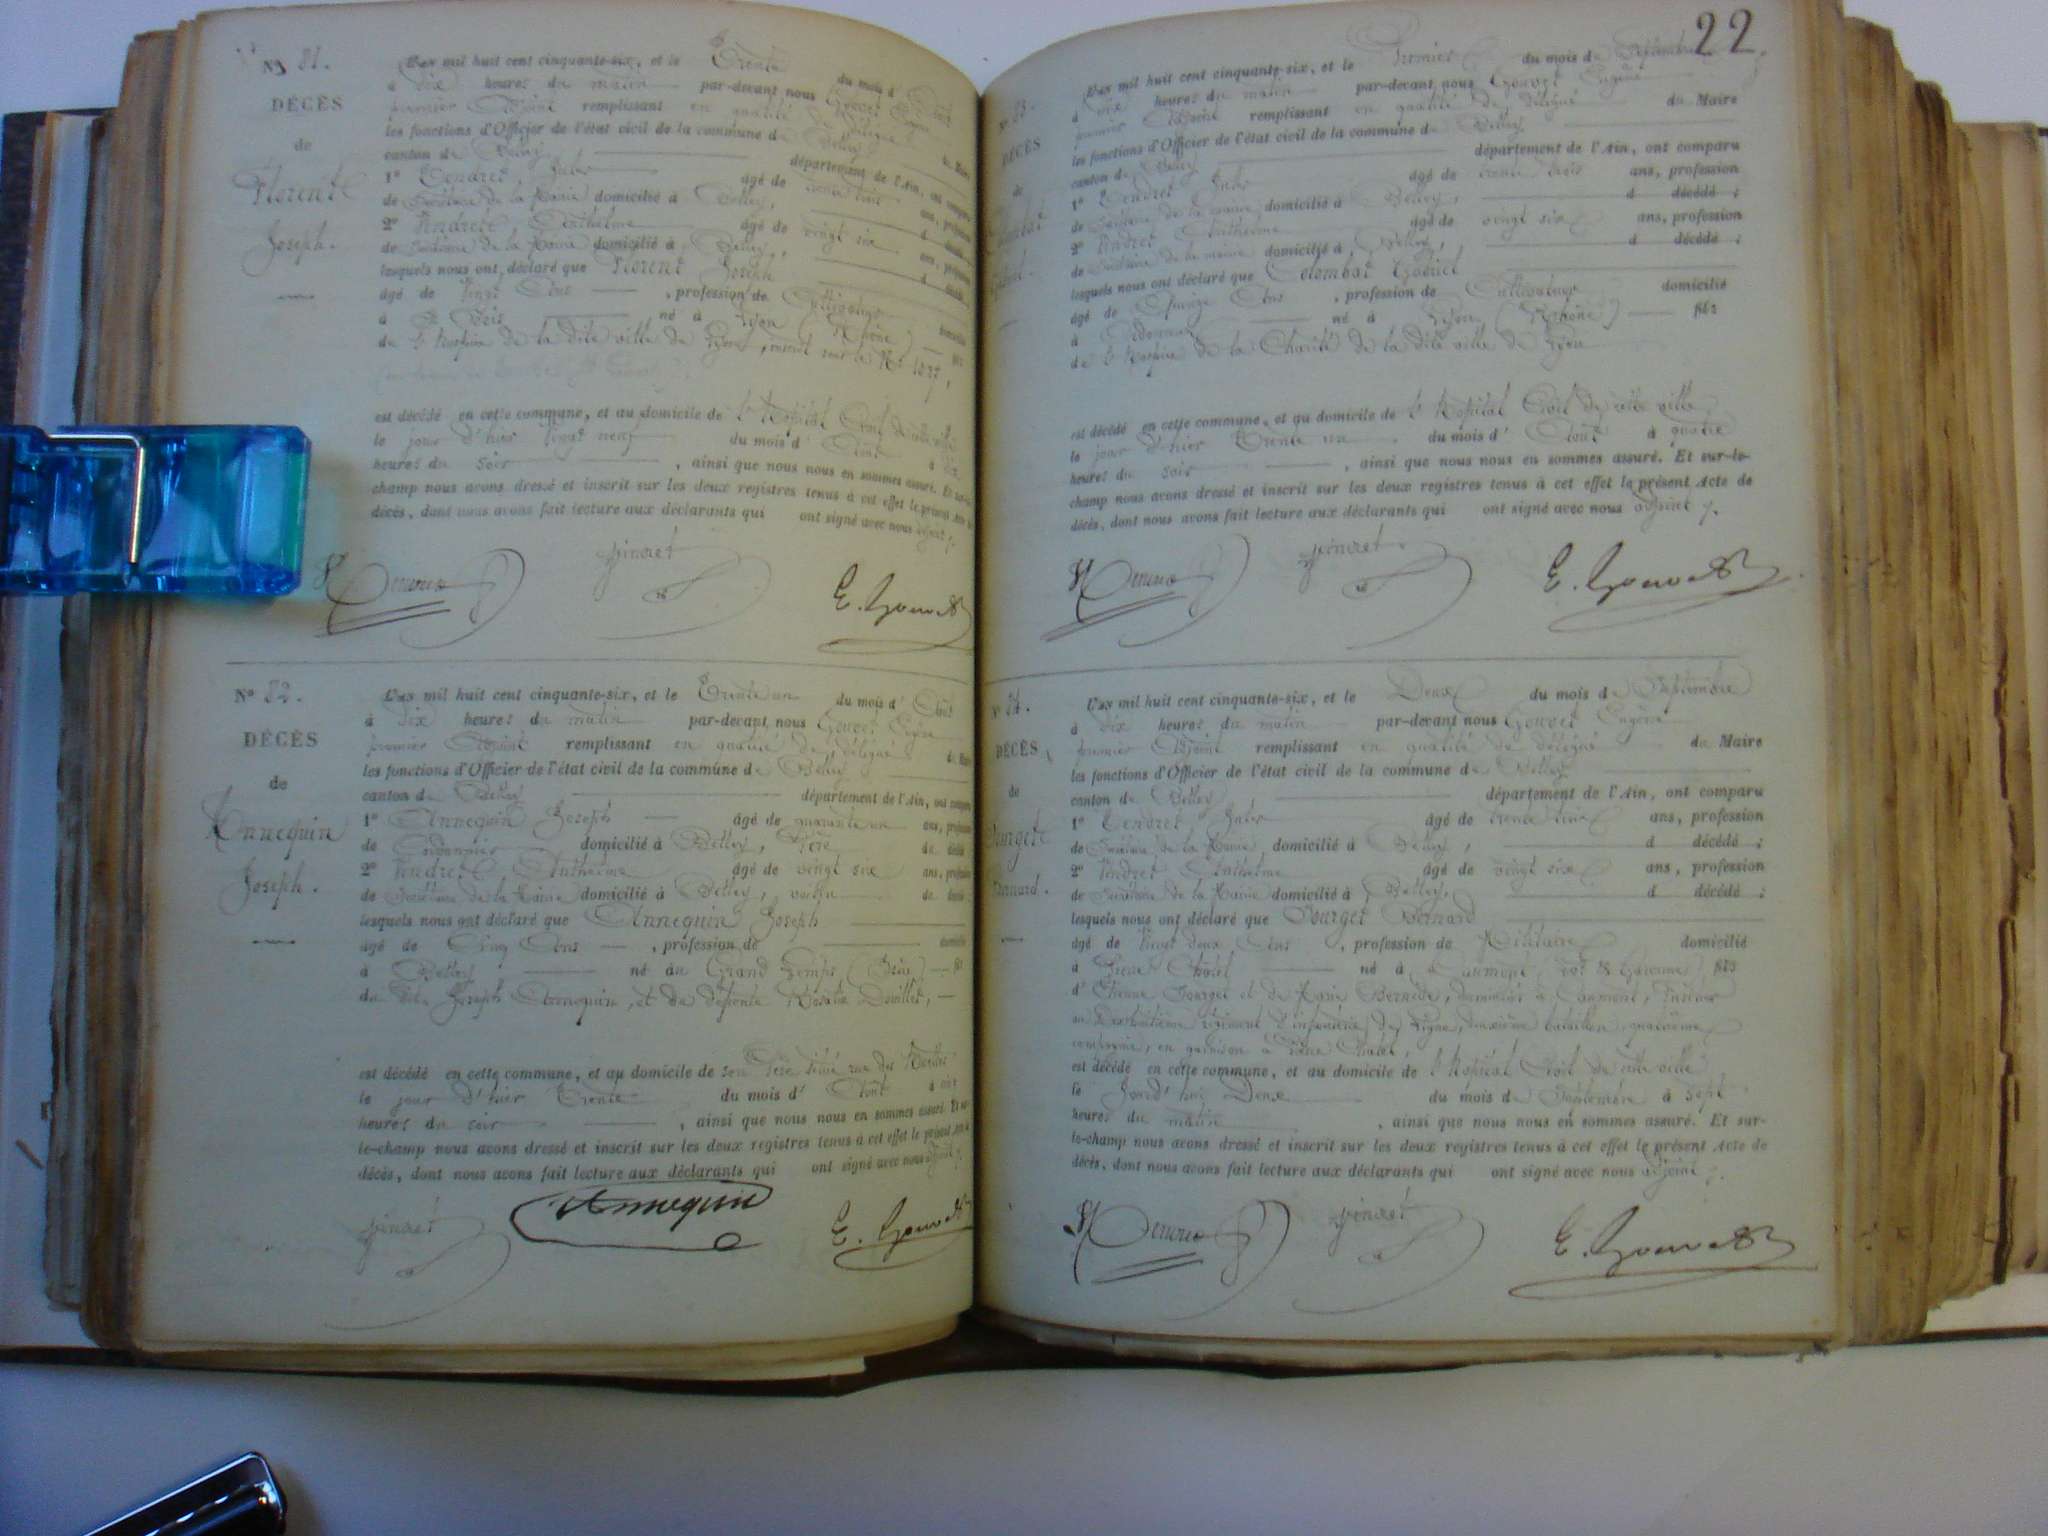 22
No 81.
DÉCÈS
de
Florent
Joseph.
L'an mil huit cent cinquante-six, et le Trente du mois d'
à dix heures du matin par-devant nous Gouvet
premier Adjoint remplissant en qualité de délégué
les fonctions d'Officier de l'état civil de la commune de Belley du Maire
canton de Belley département de l'Ain, ont comparu
1° Tendret Jules âgé de trente trois ans, profession
de Secrétaire de la Mairie domicilié à Belley, d décédé
2° Tendret Anthelme âgé de vingt six ans, profession
de Secrétaire de la Mairie domicilié à Belley, d décédé
lesquels nous ont déclaré que Florent Joseph
âgé de Vingt Ans , profession de Cultivateur domicilié
à né à Lyon (Rhône) fils
de l'hospice de la dite ville de Lyon, inscrit sous le No
est décédé en cette commune, et au domicile de l'Hôpital Civil de cette ville
le jour d'hier Vingt neuf du mois d' Août à dix
heures du soir , ainsi que nous nous en sommes assuré. Et sur-le-
champ nous avons dressé et inscrit sur les deux registres tenus à cet effet le présent Acte de
décès, dont nous avons fait lecture aux déclarants qui ont signé avec nous adjoint
E. Gouvet
No 82.
DÉCÈS
de
Annequin
Joseph.
L'an mil huit cent cinquante-six, et le Trente un du mois d' Août
à dix heures du matin par-devant nous Gouvet Eugène
premier Adjoint remplissant en qualité de délégué du Maire
les fonctions d'Officier de l'état civil de la commune de Belley
canton de Belley département de l'Ain, ont comparu
1° Annequin Joseph âgé de quarante un ans, profession
de Cordonnier domicilié à Belley, Père du décédé
2° Tendret Anthelme âgé de vingt six ans, profession
de Secrétaire de la Mairie domicilié à Belley, voisin du décédé
lesquels nous ont déclaré que Annequin Joseph
âgé de Cinq Ans , profession de domicilié
à Belley né au Grand Lemps (Isère) fils
du dit Joseph Annequin, et de défunte Rosalie Douillet,
est décédé en cette commune, et au domicile de son Père situé rue des
le jour d'hier Trente du mois d' Août à six
heures du soir , ainsi que nous nous en sommes assuré. Et sur-
le-champ nous avons dressé et inscrit sur les deux registres tenus à cet effet le présent Acte de
décès, dont nous avons fait lecture aux déclarants qui ont signé avec nous adjoint
Annequin E. Gouvet
No 83.
DÉCÈS
de
L'an mil huit cent cinquante-six, et le Premier du mois de Septembre
à dix heures du matin par-devant nous Gouvet Eugène
premier Adjoint remplissant en qualité de délégué du Maire
les fonctions d'Officier de l'état civil de la commune de Belley
canton de Belley département de l'Ain, ont comparu
1° Tendret Jules âgé de trente trois ans, profession
de Secrétaire de la Mairie domicilié à Belley, d décédé ;
2° Tendret Anthelme âgé de vingt six ans, profession
de Secrétaire de la mairie domicilié à Belley, d décédé ;
lesquels nous ont déclaré que Colombat Gabriel
âgé de Quinze Ans , profession de Cultivateur domicilié
à né à Lyon (Rhône) fils
de l'Hospice de la Charité de la dite ville de Lyon
est décédé en cette commune, et au domicile de l'Hôpital Civil de cette ville
le jour d'hier Trente un du mois d' Août à quatre
heures du soir , ainsi que nous nous en sommes assuré. Et sur-le-
champ nous avons dressé et inscrit sur les deux registres tenus à cet effet le présent Acte de
décès, dont nous avons fait lecture aux déclarants qui ont signé avec nous adjoint
E. Gouvet
No 84.
DÉCÈS
de
Bernard.
L'an mil huit cent cinquante-six, et le Deux du mois de Septembre
à dix heures du matin par-devant nous Gouvet Eugène
premier Adjoint remplissant en qualité de délégué du Maire
les fonctions d'Officier de l'état civil de la commune de Belley
canton de Belley département de l'Ain, ont comparu
1° Tendret Jules âgé de trente trois ans, profession
de Secrétaire de la Mairie domicilié à Belley, d décédé ;
2° Tendret Anthelme âgé de vingt six ans, profession
de Secrétaire de la Mairie domicilié à Belley, d décédé ;
lesquels nous ont déclaré que Bernard
âgé de Vingt deux Ans , profession de Militaire domicilié
à Pierre Châtel né à Caumont, Lot & Garonne, fils
d'Etienne et de Marie Bernède, domiciliés à Caumont, Fusilier
au Dixhuitième régiment d'infanterie de Ligne, deuxième bataillon, quatrième
compagnie, en garnison à Pierre Châtel,
est décédé en cette commune, et au domicile de l'Hôpital Civil de cette ville
le Jourd'hui Deux du mois de Septembre à sept
heures du matin , ainsi que nous nous en sommes assuré. Et sur-
le-champ nous avons dressé et inscrit sur les deux registres tenus à cet effet le présent Acte de
décès, dont nous avons fait lecture aux déclarants qui ont signé avec nous adjoint
E. Gouvet